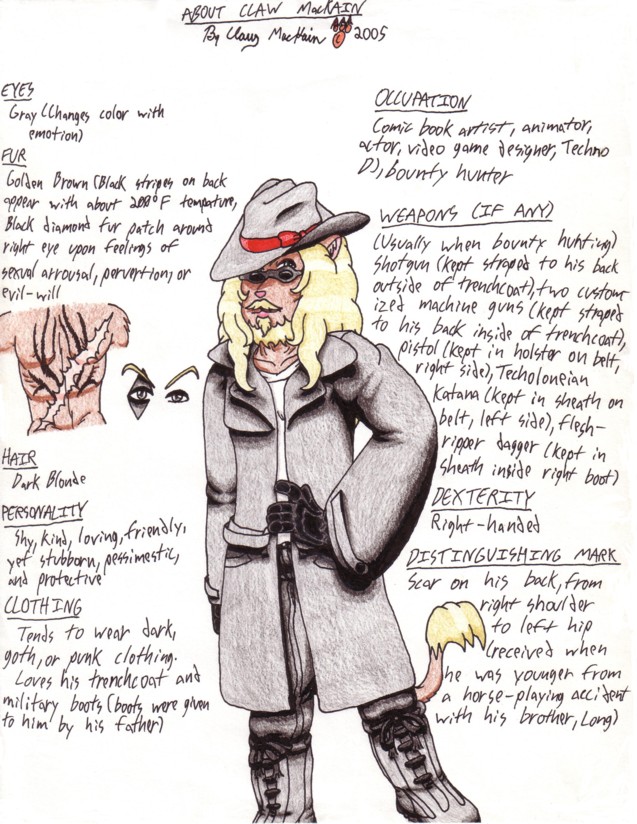 ABOUT CLAW MacKAIN
By Clawy MacKain © 2005
EYES
Gray (Changes color with
emotion)
FUR
Golden Brown (Black stripes on back
appear with about 200°F tempature,
Black diamond fur patch around
right eye upon feelings of
sexual arrousal, pervertion, or
evil-will
HAIR
Dark Blonde
PERSONALITY
Shy, kind, loving, friendly,
yet stubborn, pessimestic,
and protective
CLOTHING
Tends to wear dark,
goth, or punk clothing.
Loves his trenchcoat and
military boots (boots were given
to him by his father)
OCCUPATION
Comic book artist, animator,
actor, video game designer, Techno
DJ, bounty hunter
WEAPONS (IF ANY)
(Usually when bounty hunting)
Shotgun (kept straped to his back
outside of trenchcoat), two custom-
ized machine guns (kept straped
to his back inside of trenchcoat),
pistol (kept in holster on belt,
right side), Techoloneian
Katana (kept in sheath on
belt, left side), flesh-
ripper dagger (kept in
sheath inside right boot)
DEXTERITY
Right-handed
DISTINGUISHING MARK
Scar on his back, from
right shoulder
to left hip
(received when
he was younger from
a horse-playing accident
with his brother, Long)